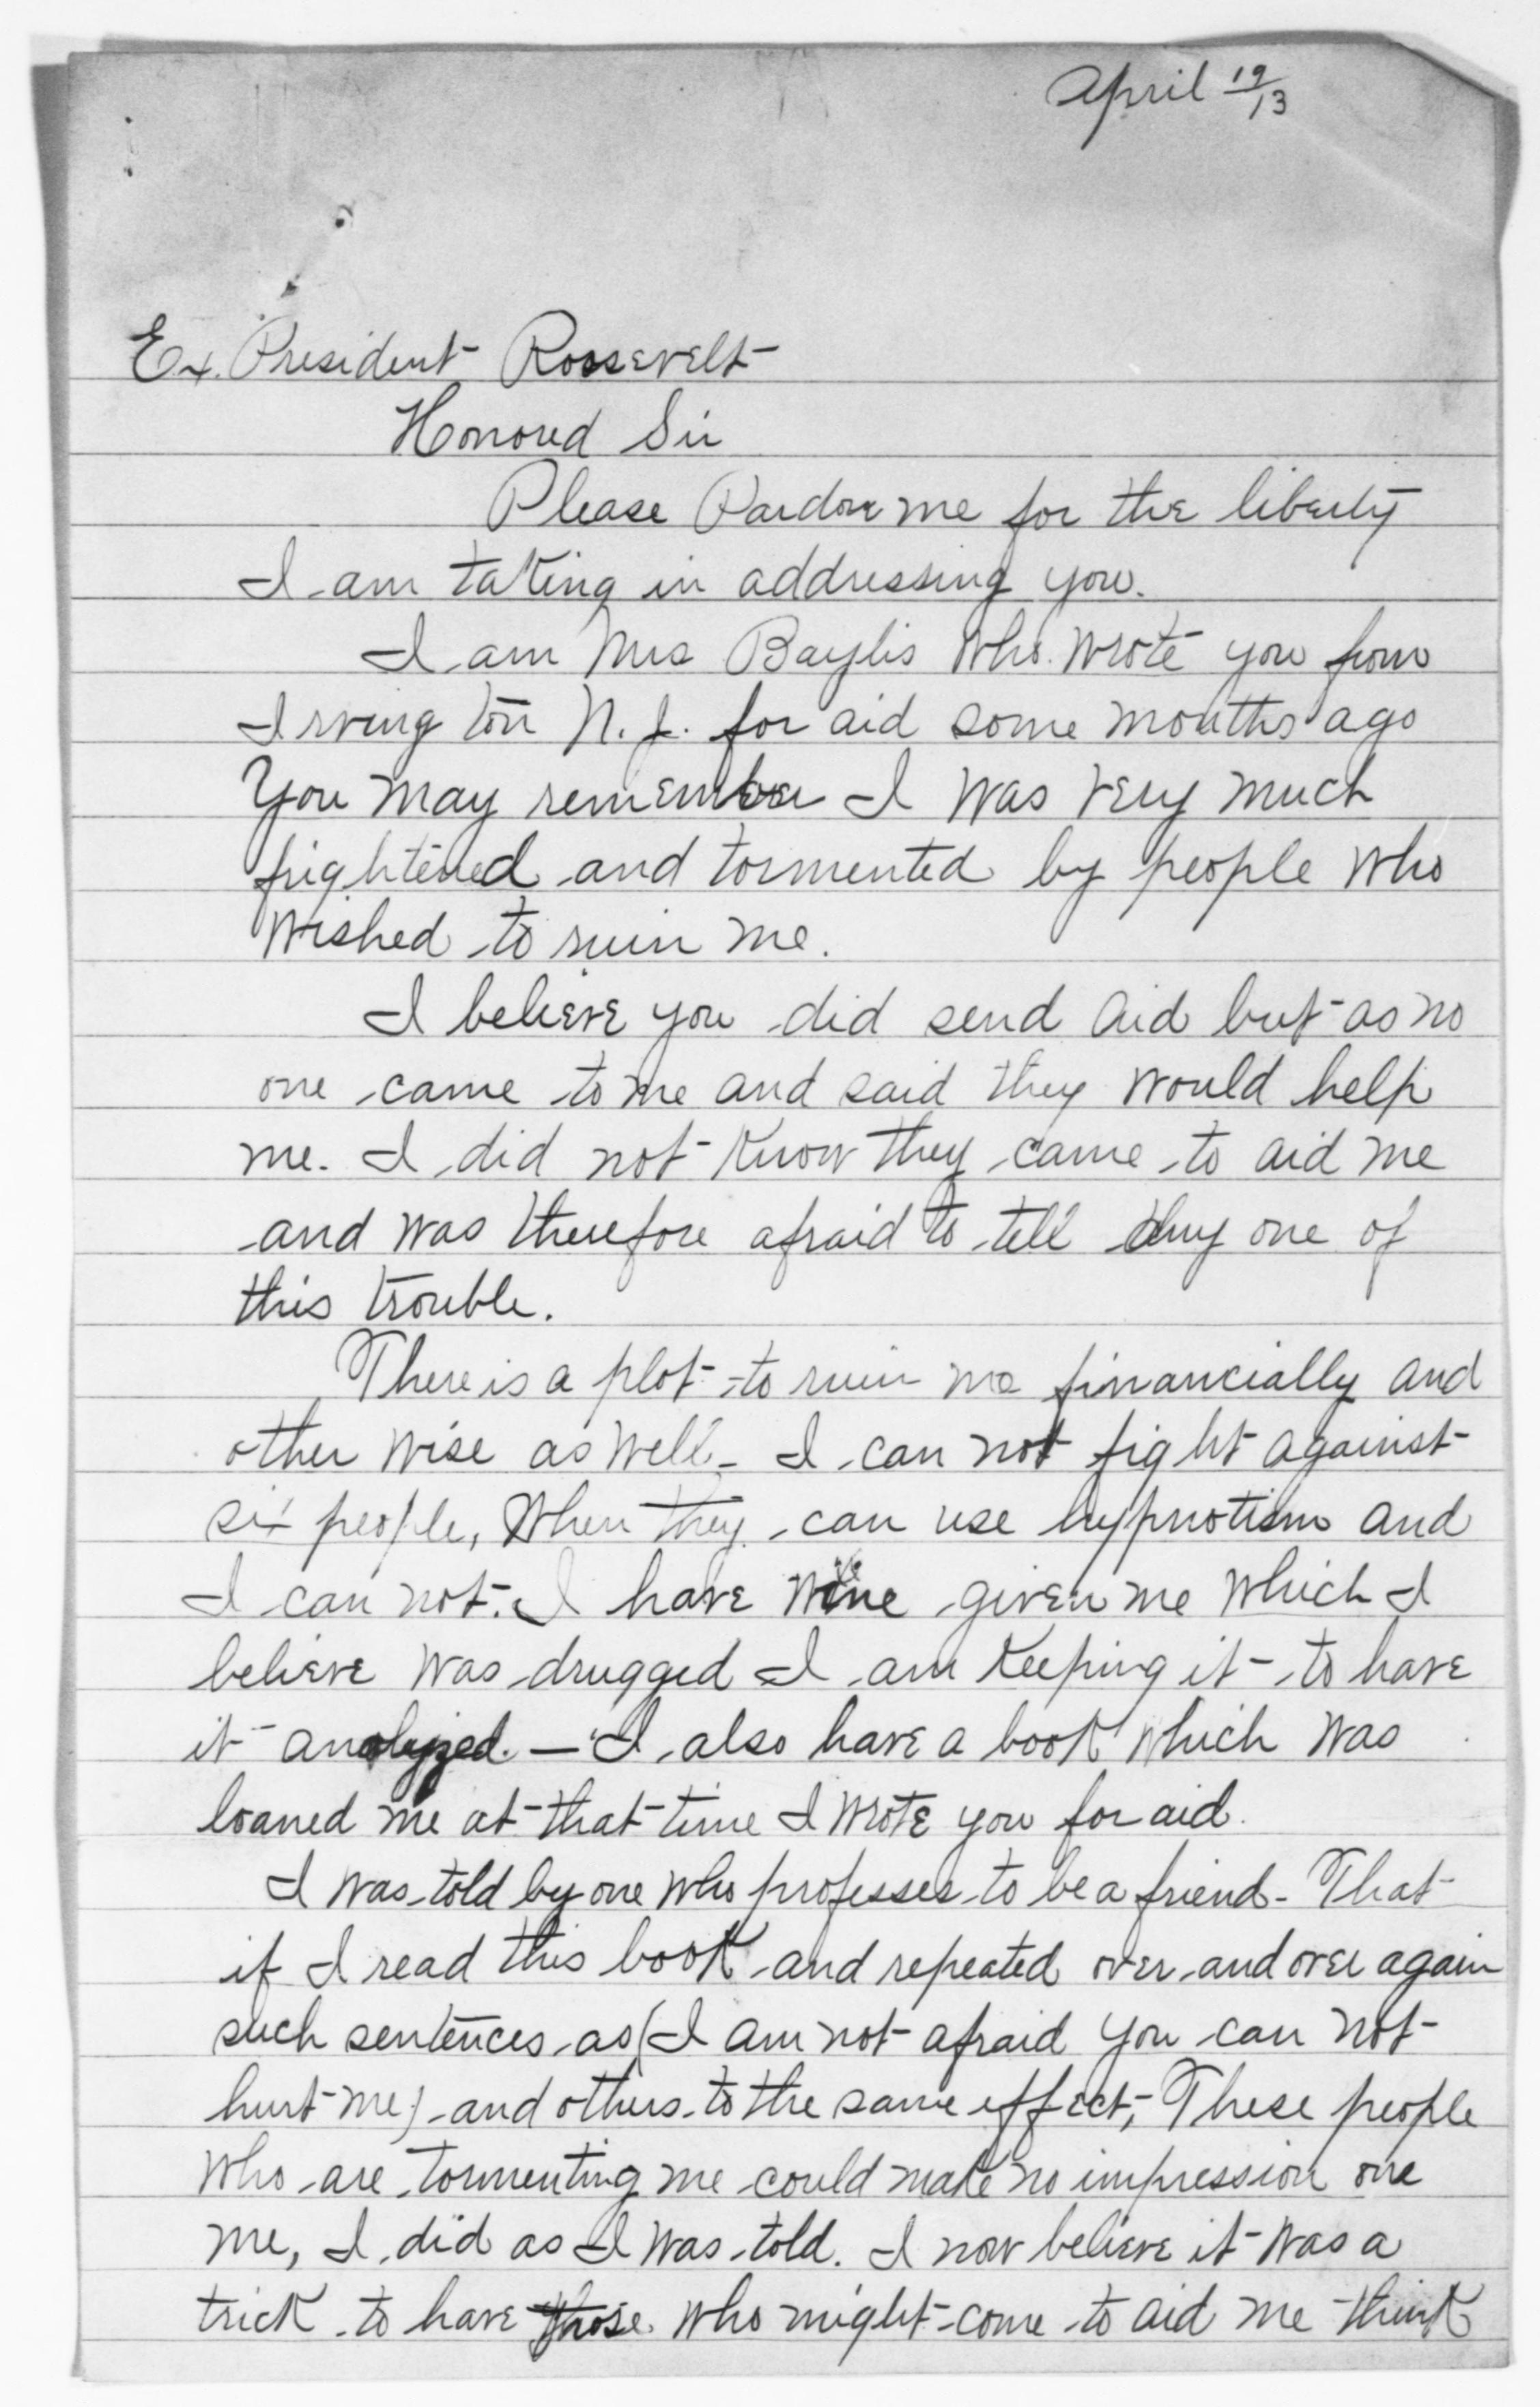 April 19/13
Ex. President Rossevelt
Honored Sir
Please Pardon me for the liberty
I am taking in addressing you.
I am Mrs Baylis who wrote you from
Irving ton N. J. for aid some months ago
You may remember I was very much
frightened and tormented by people who
wished to ruin me.
I believe you did send aid but as no
one came to me and said they would help
me. I did not know they came to aid me
and was therefore afraid to tell any one of
this trouble.
There is a plot to ruin me financially and
other wise as well - I can not fight against
six people, when they can use hypnotism and
I can not. I have wine given me which I
believe was drugged I am keeping it to have
it analyzed. — I also have a book which was
loaned me at that time I wrote you for aid.
I was told by one who professes to be a friend - That
if I read this book and repeated over and over again
such sentences as (I am not afraid you can not
hurt me) and others to the same effect, These people
who are tormenting me could make no impression one
me, I did as I was told. I now believe it was a
trick to have those who might come to aid me think